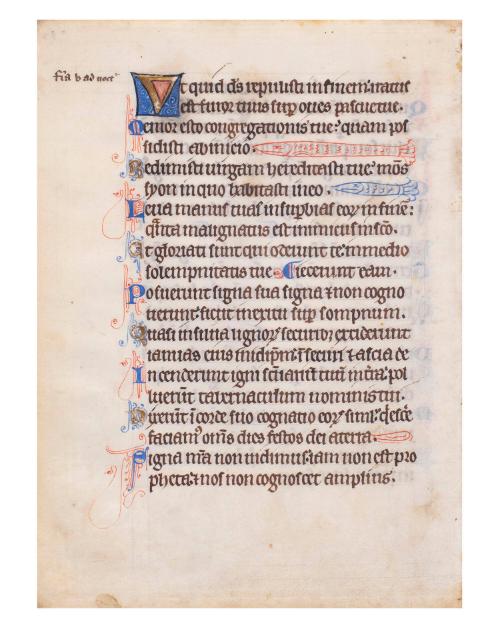 fia v ad noct
Vt quid ds repulisti in finem iratus
est furor tuus sup oues pascue tue.
Memor esto congregationis tue: quam pos
sedisti ab inicio.
Redimisti uirgam hereditatis tue: mons
syon in quo habitasti in eo.
Leua manus tuas in supbias eor in finem:
quanta malignatus est inimicus in sco.
Et gloriati sunt qui oderunt te: in medio
solempnitatis tue. Ciecerunt eam.
Posuerunt signa sua signa & non cogno
uerunt: sicut in exitu sup sompnum.
Quasi in silua lignor securibz exciderunt
ianuas eius in idipm: i securi & ascia de
Incenderunt igni scuariu tuu in tra: pol
luerut tabernaculum nominis tui.
Dixerut i corde suo cognatio eor simul: qesce
faciam oms dies festos dei a terra.
Signa nra non uidimus iam non est pro
pheta: & nos non cognoscet amplius.